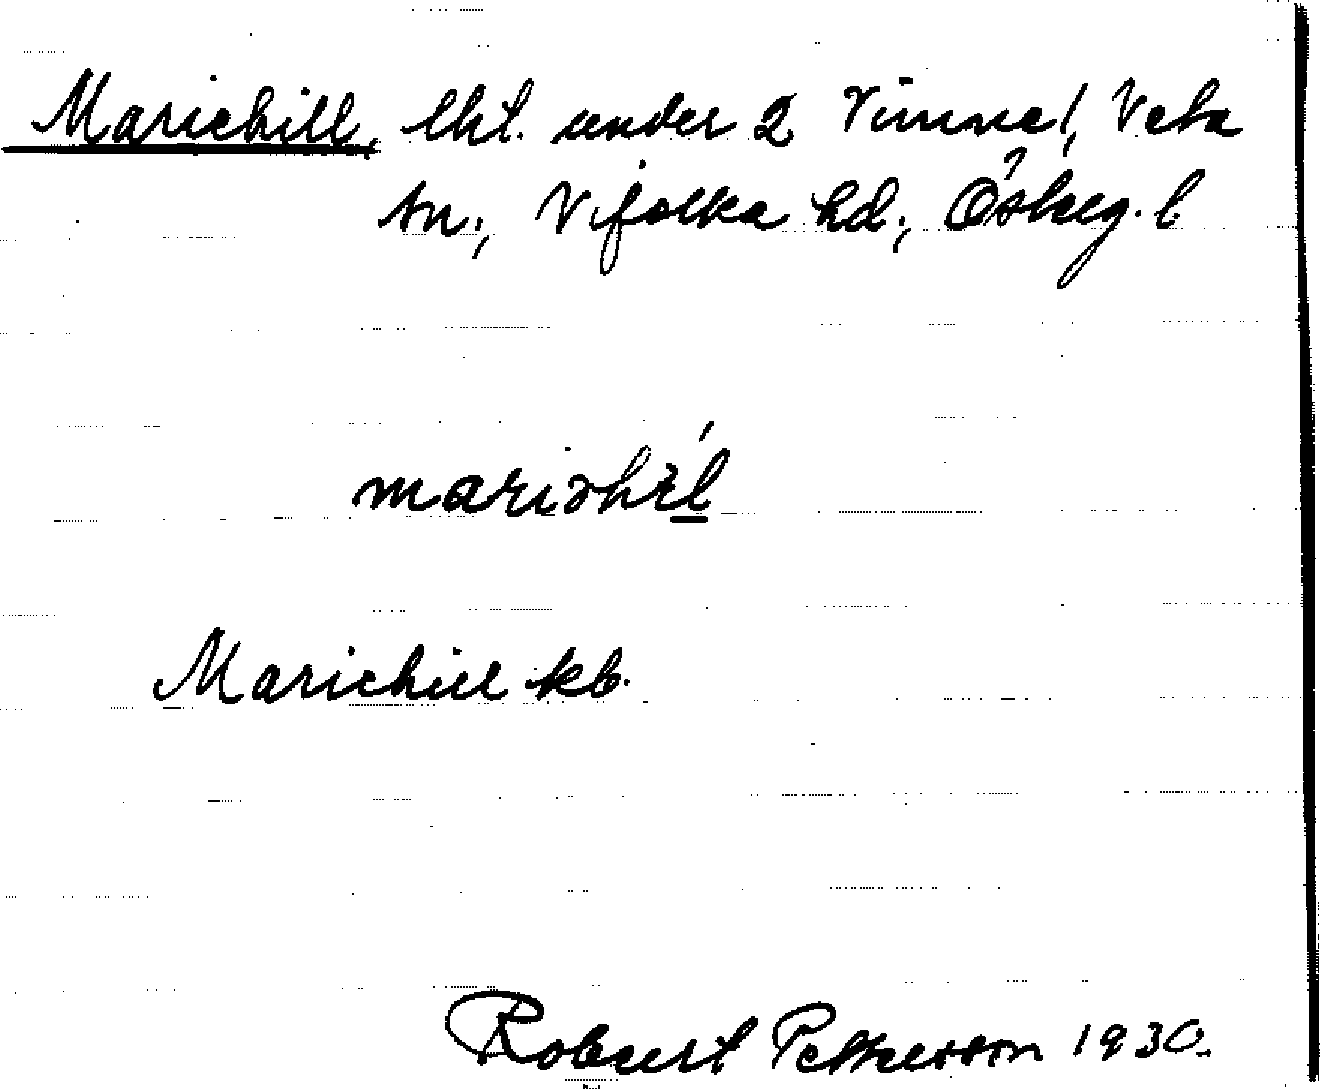 Mariehill, lht. under 2 Vimne!, Veta
sn; Vifolka hd; Österg. l
mariəhil
Mariehill kb.
Robert Pettersson 1930.